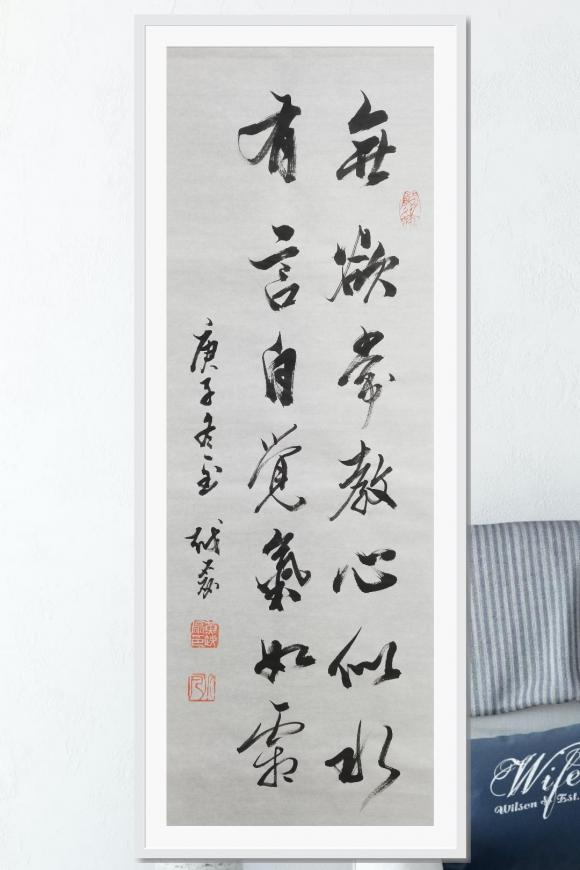 無欲常教心似水
有言自覺氣如霜
庚子冬至
Wife
Wilson & Est.